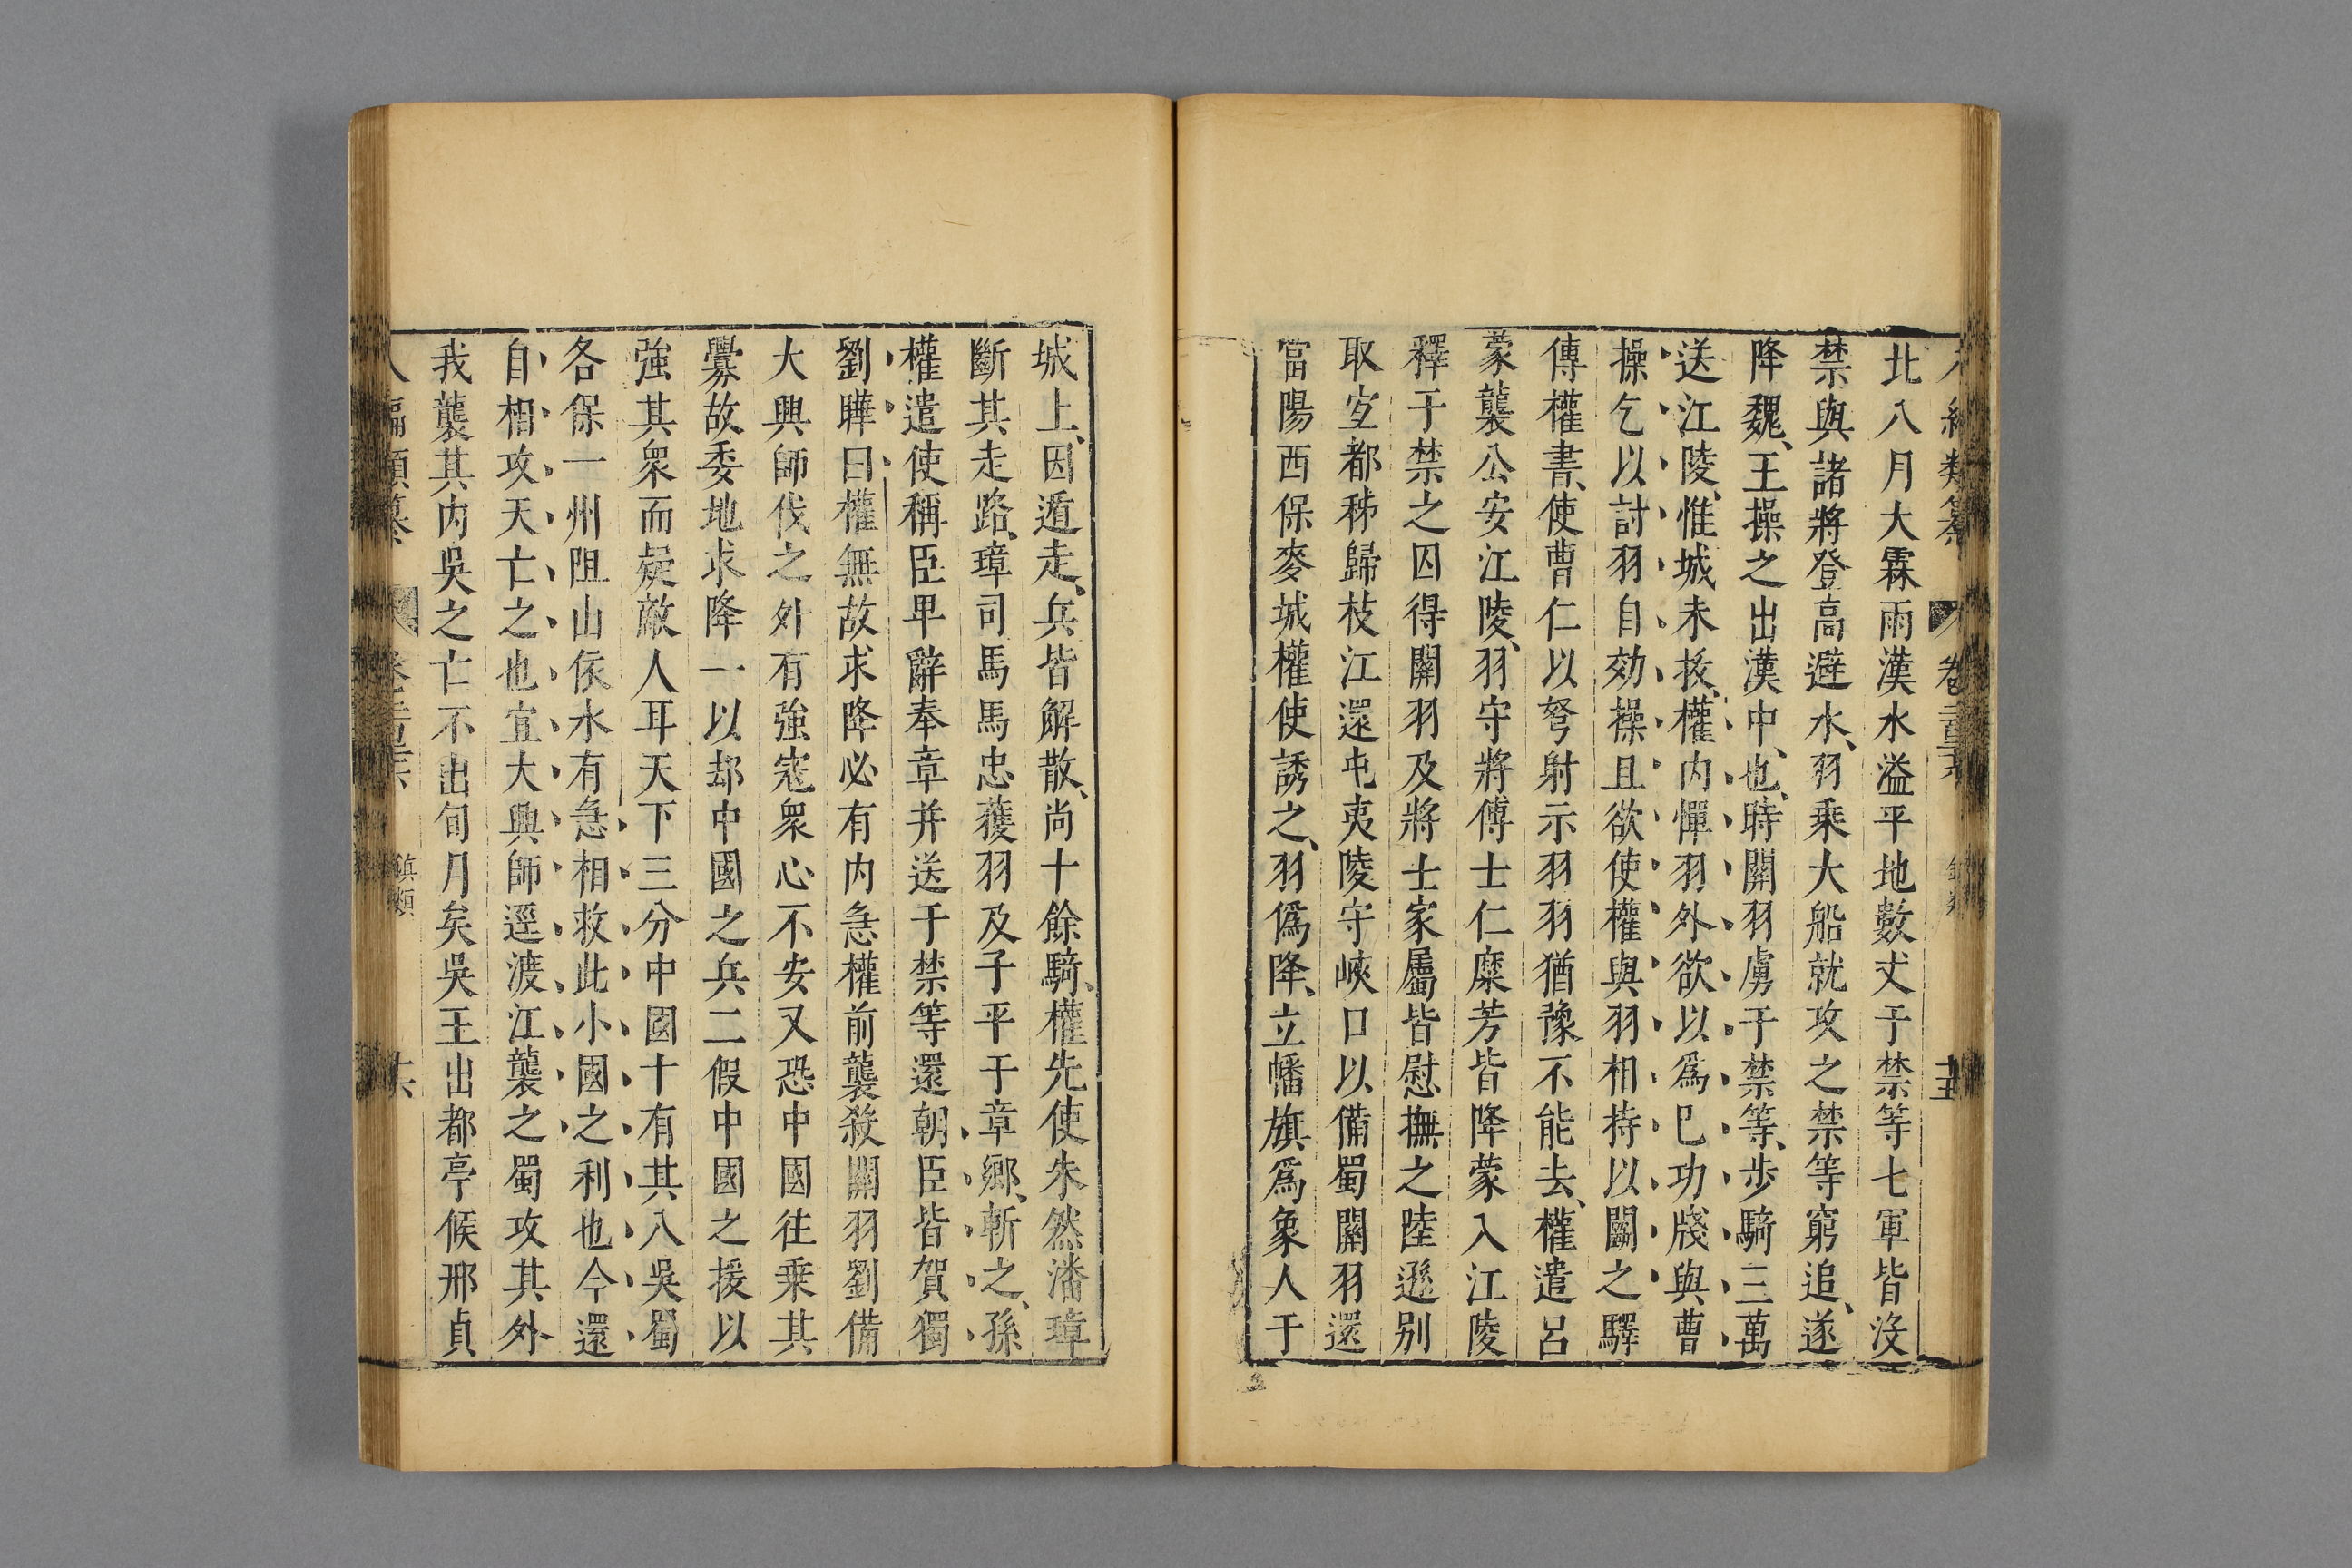 北八月大霖雨漢水溢平地數丈于禁等七軍皆沒
禁與諸將登高避水、羽乗大船就攻之禁等窮追、遂
降魏、王操之出漢中、也、時關羽虜于禁等、步騎三萬
送江陵、惟城未拔、權内憚羽外欲以爲已功牋與曹
操乞以討羽自効操且欲使權與羽相持以鬭之驛
傳權書、使曹仁以弩射示羽羽猶豫不能去、權遣呂
蒙襲公安江陵、羽守將傅士仁糜芳皆降蒙入江陵
釋于禁之囚得關羽及將士家屬皆慰撫之陸遜别
取宜都秭歸枝江還屯夷陵守峽口以備蜀關羽還
當陽西保麥城權使誘之、羽僞降、立幡旗爲象人于
城上、因遁走、兵皆解散、尚十餘騎、權先使朱然潘璋
斷其走路、璋司馬馬忠獲羽及子平于章鄉、斬之、孫
權遣使稱臣卑辭奉章并送于禁等還朝臣皆賀獨
劉曄曰權無故求降必有内急權前襲殺關羽劉備
大興師伐之外有強寇衆心不安又恐中國往乗其
釁故委地求降一以却中國之兵二假中國之援以
強其衆而疑敵人耳天下三分中國十有其八吳蜀
各保一州阻山依水有急相救此小國之利也今還
自相攻天亡之也宜大興師逕渡江襲之蜀攻其外
我襲其内吳之亡不出旬月矣吳王出都亭候邢貞
鎮類